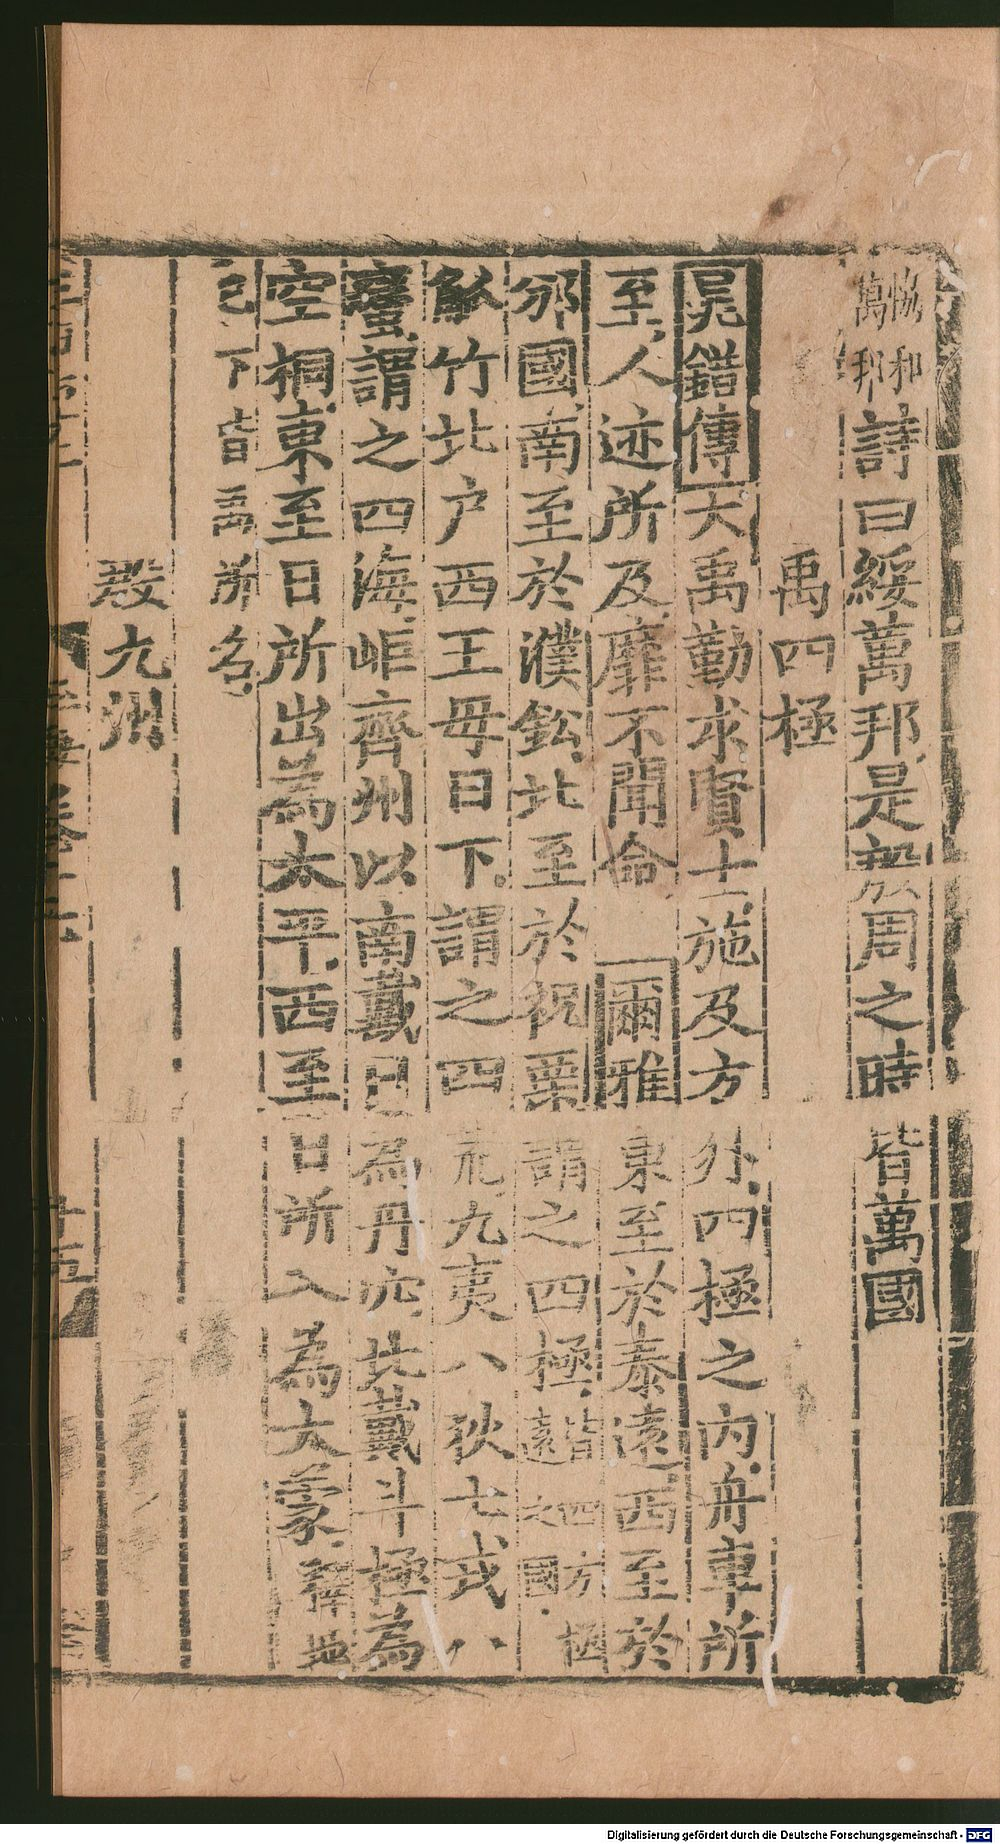 協和萬邦詩曰綏萬邦是殷周之時皆萬國
禹四極
晁錯傳大禹勤求賢士施及方外四極之内舟車所
至人迹所及靡不聞命 爾雅東至於泰遠西至於
邠國南至於濮鈆北至於祝栗謂之四極皆四方極遠之國
觚竹北户西王毋日下謂之四荒九夷八狄七戎八
蠻謂之四海岠齊州以南戴日為丹穴北戴斗極為
空桐東至日所出為太平西至日所入為大蒙
巳下皆
殷九州
Digitalisierung gefördert durch die Deutsche Forschungsgemeinschaft - DFG